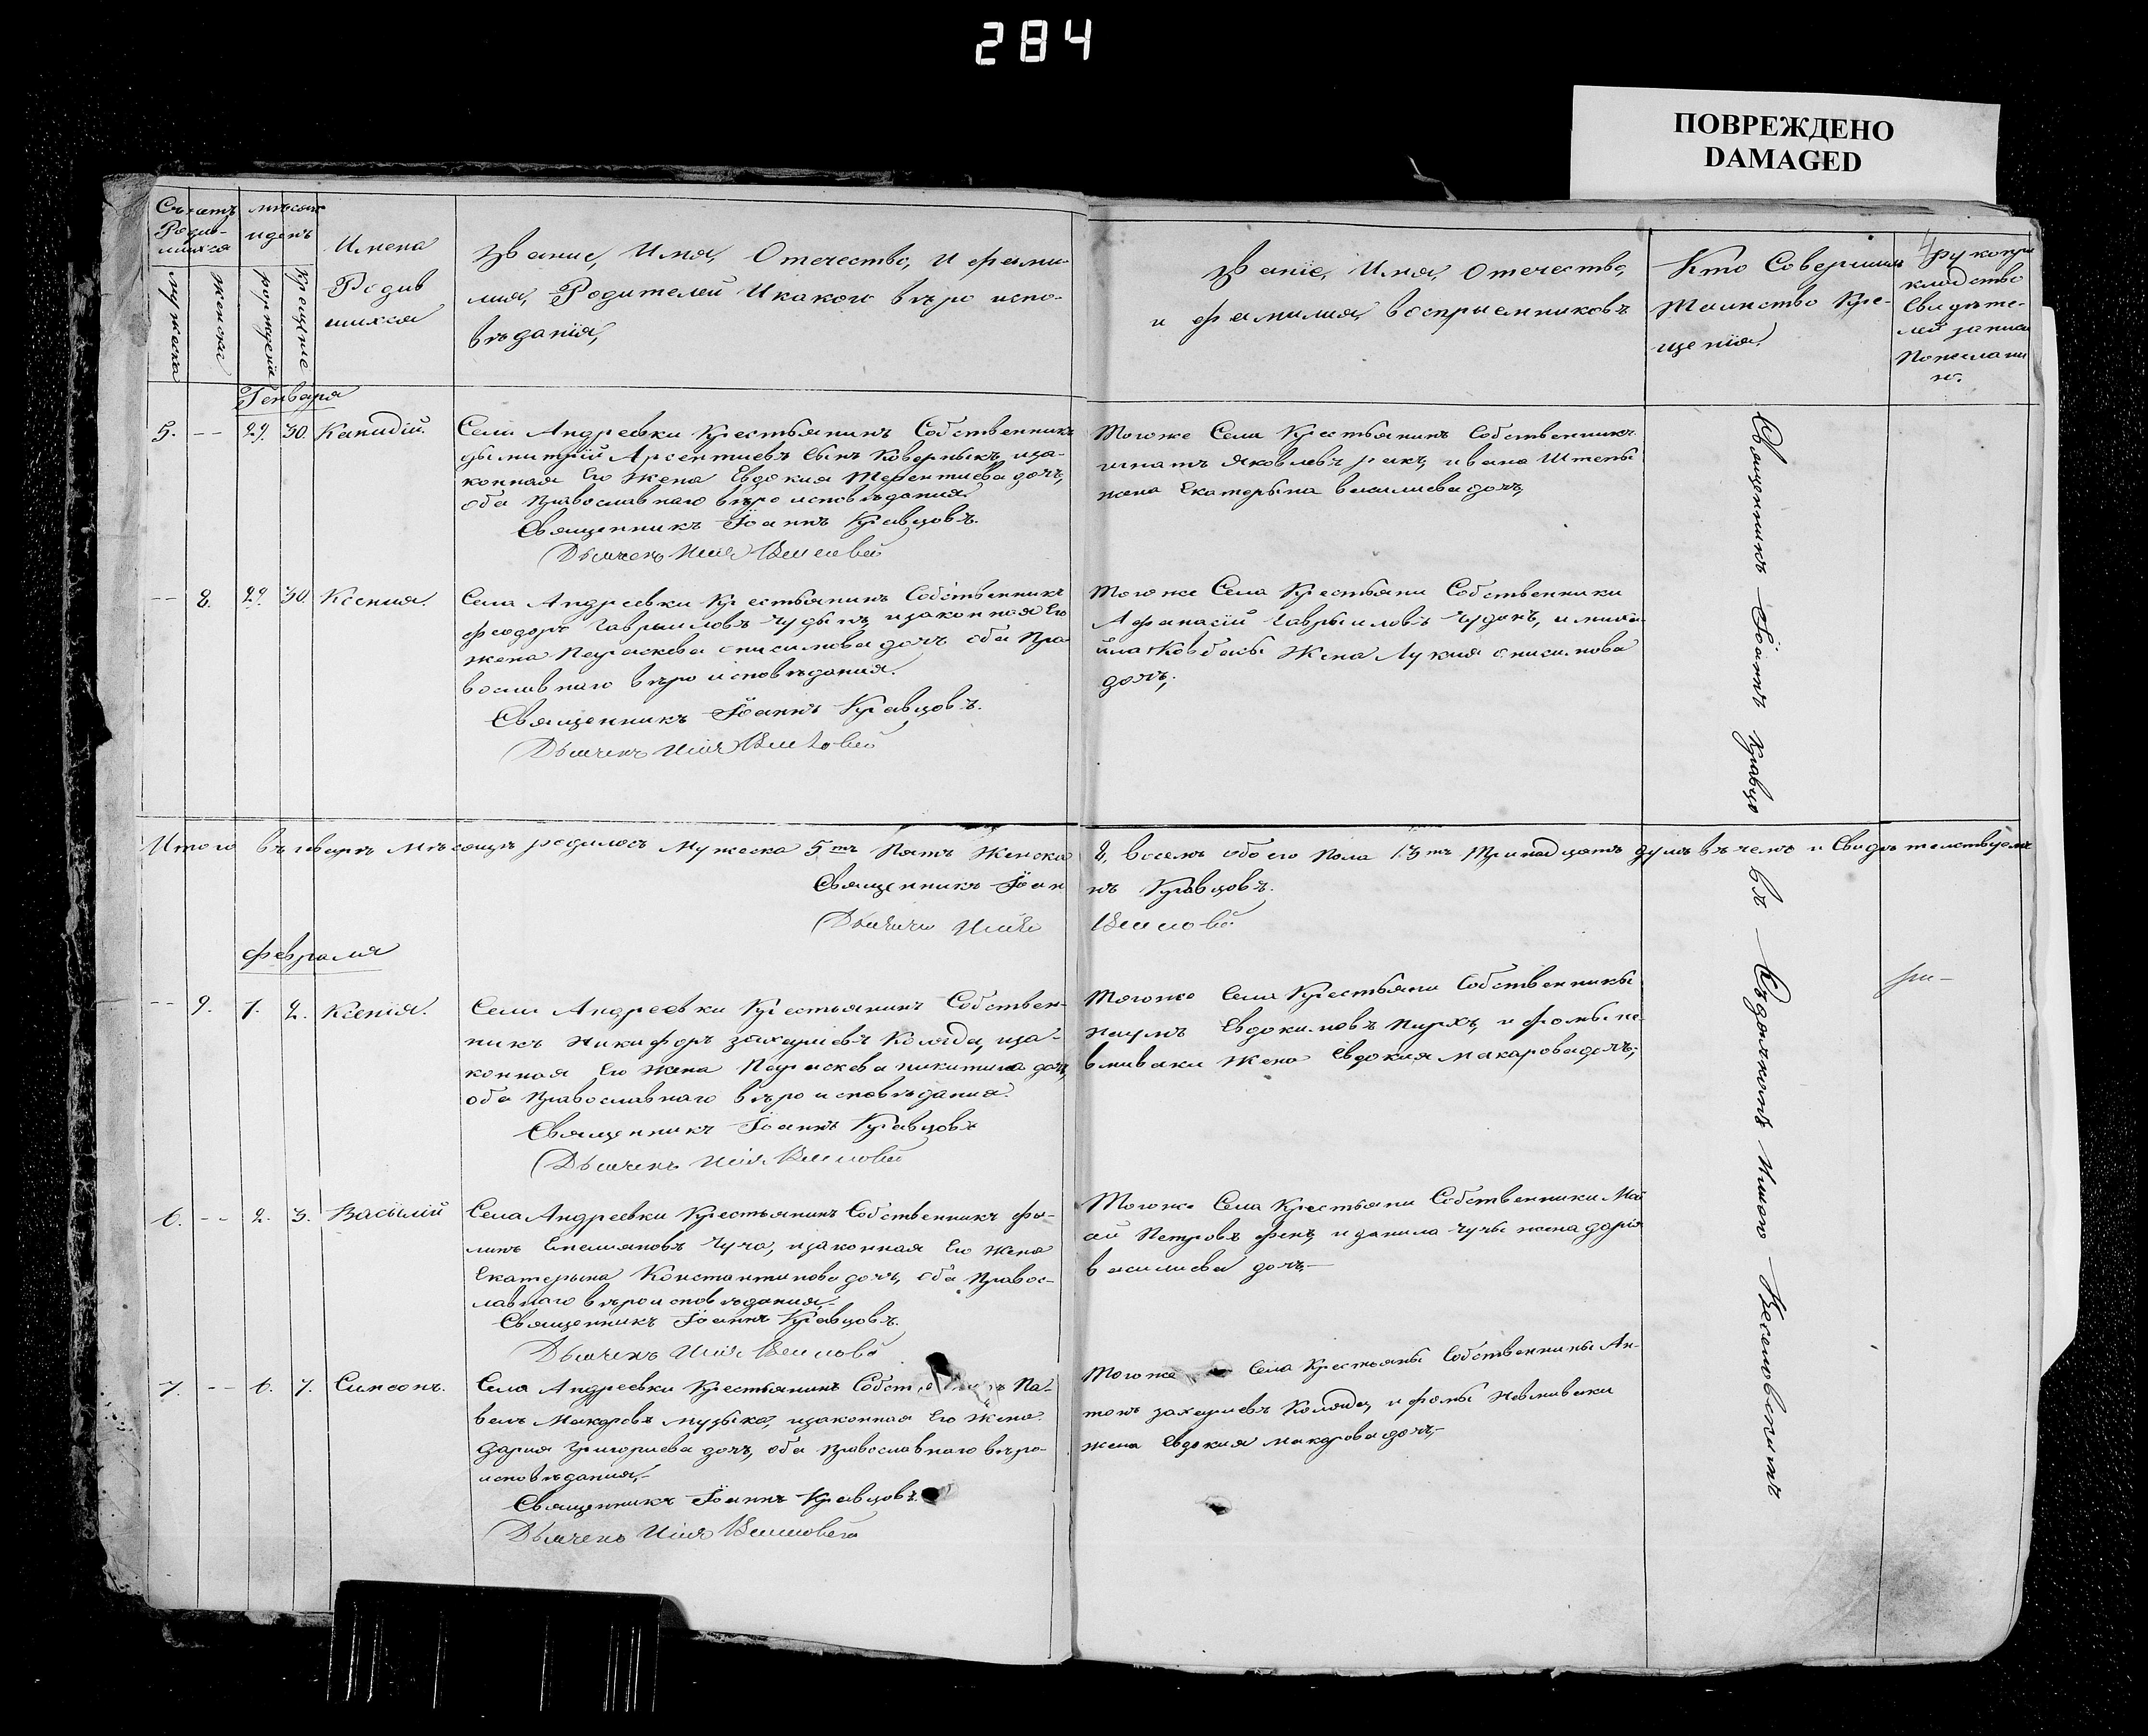 284
ПОВРЕЖДЕНО
DAMAGED
Счетъ
Роди-
шихся
мѣсяцъ
и день
Имена
Родив
шихся
мужеска
женска
рождения
крещение
Звание, Имя, Отечество, и фами
лия, Родителей и какого вѣро испо-
вѣданія,
Званіе, Имя, Отечество,
и фамилия, воспрыемниковъ
Кто Совершилъ
Таинство Кре-
щенія.
4
рукопри
кладство
Свидѣте-
лей записи
Пожелани
ю.
Генваря
5. -- 29. 30.
Села Андреевки Крестьянинъ Собственникъ
дымитрій Арсентиевъ сынъ Коверныкъ, иза-
конная Его Жена Евдокия Терентиева дочь,
оба Православнаго вѣроисповѣдания
Священникъ Іоаннъ Кравцовъ.
Дьячекъ Илія
Тогоже Села Крестьянинъ Собственникъ
игнатъ Яковлевъ рекъ, ивана Штепы
жена Екатерына василиева дочь,
-- 8. 29. 30. Ксения.
Села Андреевки Крестьянинъ Собственникъ
феодоръ Гаврыловъ Чудынъ, изаконная Его
жена Параскева онисимова дочь оба Пра
вославнаго вѣроисповѣдания.
Священникъ Іоаннъ Кравцовъ.
Дьячекъ Илія
Тогоже Села Крестьяни Собственники
Афанасій Гаврыиловъ Чудонъ, и миха
йла Ковбасы Жена Лукия онисимова
дочь,
Итого въ генварѣ мѣсяцѣ родилось Мужеска 5ть Пять Женска 8, восемъ обоего Пола 13ть Тринадцать душъ въ чемъ и Свидѣтельствуемъ
Священникъ Іоаннъ Кравцовъ.
Дьячекъ Илія
февраля
-- 9. 1. 2. Ксенія.
Села Андреевки Крестьянинъ Собствен-
никъ Никифоръ захариевъ Коляда, иза-
конная Его Жена Параскева никитина дочь,
оба Православнаго вѣроисповѣдания.
Священникъ Іоаннъ Кравцовъ
Дьячекъ Илія
Тогоже Села Крестьяни Собственникы
наумъ Евдокимовъ Пирхъ, и фомы не-
вмиваки Жена Евдокия макарова дочь;
6. -- 2. 3. Василий
Села Андреевки Крестьянинъ Собственникъ фи-
липъ Емелияновъ Чуча, изаконная Его Жена
Екатерына Константинова дочь, оба Правос-
лавнаго вѣроисповѣдания,
Священникъ Іоаннъ Кравцовъ.
Дьячекъ Илія
Тогоже Села Крестьяни Собственники
Петровъ фенъ, и данила Чучы жена дария
василиева дочь,-
7. -- 6. 7. Симеонъ.
Села Андреевки Крестьянинъ Па-
велъ Макаровъ музыка, изаконная Его Жена
дария Григориева дочь, оба Православнаго вѣро-
исповѣдания,-
Священникъ Іоаннъ Кравцовъ.
Дьячекъ Илія
Тогоже Села Крестьяны Собственникы Ан-
тонъ захариевъ Коляда, и фомы Невмиваки
жена Евдокия макарова дочь,-
Священникъ Іоаннъ Кравцо
въ